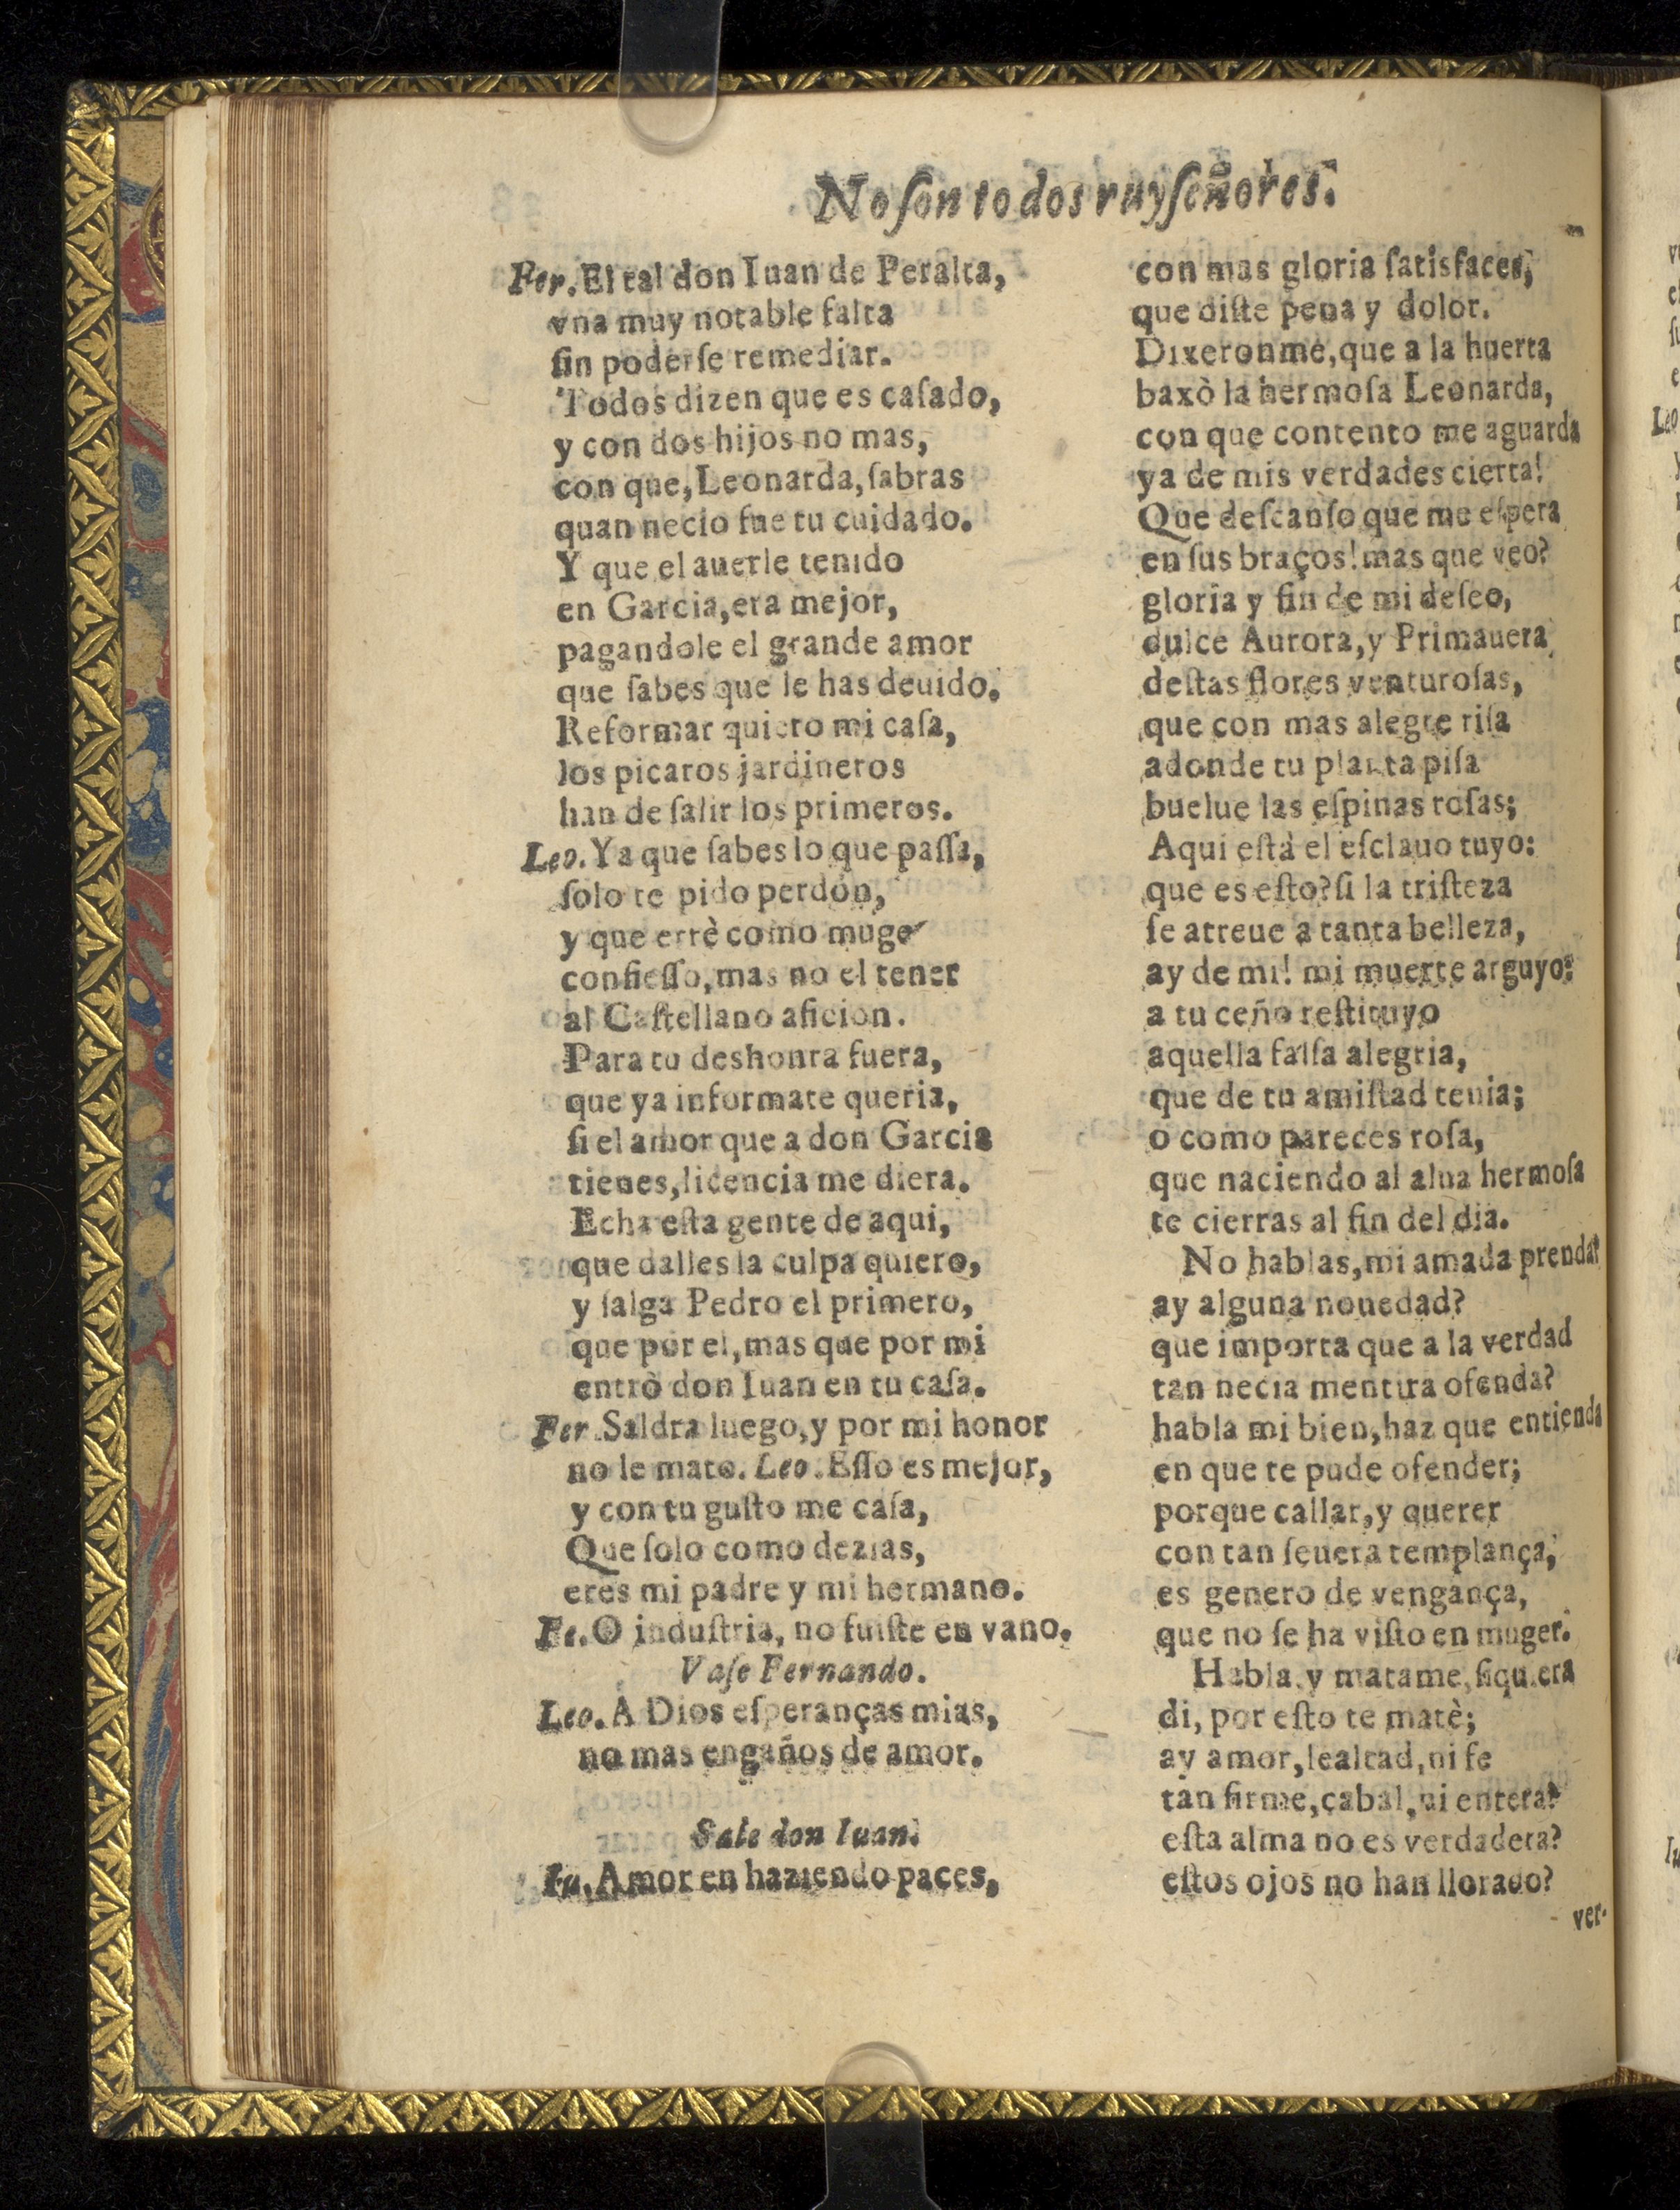 No ſon todos ruyſeñores.
Fer. El tal don Iuan de Peralta,
vna muy notable falta
ſin poderſe remediar.
Todos dizen que es caſado,
y con dos hijos no mas,
con que, Leonarda, ſabras
quan necio fue tu cuidado.
Y que el auerle tenido
en Garcia, era mejor,
pagandole el grande amor
que ſabes que le has deuido.
Reformar quiero mi caſa,
los picaros jardineros
han de ſalir los primeros.
Leo. Ya que ſabes lo que paſſa,
ſolo te pido perdon,
y que errè como muger
confieſſo, mas no el tener
al Caſtellano aficion.
Para tu deshonra fuera,
que ya informate queria,
ſi el amor que a don Garcia
tienes, licencia me diera.
Echa eſta gente de aqui,
que dalles la culpa quiero,
y ſalga Pedro el primero,
que por el, mas que por mi
entrò don Iuan en tu caſa.
Fer. Saldra luego, y por mi honor
no le mato. Leo. Eſſo es mejor,
y con tu guſto me caſa,
Que ſolo como dezias,
eres mi padre y mi hermano.
Fe. O induſtria, no fuiſte en vano.
Vaſe Fernando.
Leo. A Dios eſperanças mias,
no mas engaños de amor.
Sale don Iuan.
Iu. Amor en haziendo paces,
con mas gloria ſatisfaces,
que diſte pena y dolor.
Dixeronme, que a la huerta
baxò la hermoſa Leonarda,
con que contento me aguarda
ya de mis verdades cierta!
Que deſcanſo que me eſpera
en ſus braços! mas que veo?
gloria y fin de mi deſeo,
dulce Aurora, y Primauera
deſtas flores venturoſas,
que con mas alegre riſa
adonde tu planta piſa
buelue las eſpinas roſas;
Aqui eſtà el eſclauo tuyo:
que es eſto? ſi la triſteza
ſe atreue a tanta belleza,
ay de mi! mi muerte arguyo:
a tu ceño reſtituyo
aquella falſa alegria,
que de tu amiſtad tenia;
o como pareces roſa,
que naciendo al alua hermoſa
te cierras al fin del dia.
No hablas, mi amada prenda?
ay alguna nouedad?
que importa que a la verdad
tan necia mentira ofenda?
habla mi bien, haz que entienda
en que te pude ofender;
porque callar, y querer
con tan ſeuera templança,
es genero de vengança,
que no ſe ha viſto en muger.
Habla, y matame, ſiquiera
di, por eſto te matè;
ay amor, lealtad, ni fe
tan firme, cabal, ni entera?
eſta alma no es verdadera?
eſtos ojos no han llorado?
ver-